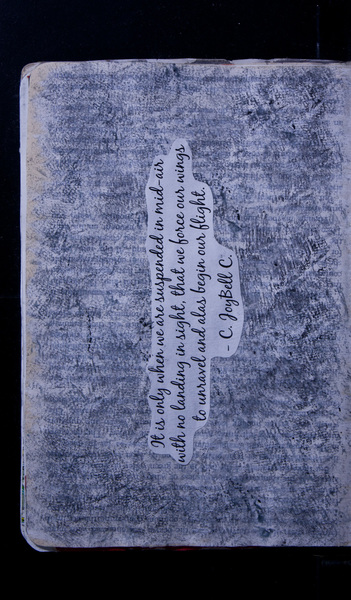 It is only when we are suspended in mid-air
with no landing in sight, that we force our wings
to unravel and alas begin our flight.
- C. JoyBell C.